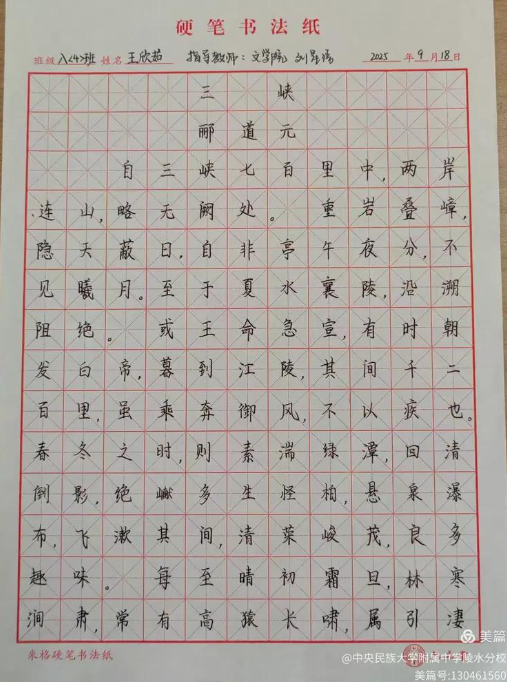 硬笔书法纸
班级 八(4)班 姓名 王欣茹 指导教师：文学院 刘 2025年9月18日
三峡
郦道元
自三峡七百里中，两岸
连山，略无阙处。重岩叠嶂，
隐天蔽日，自非亭午夜分，不
见曦月。至于夏水襄陵，沿溯
阻绝。或王命急宣，有时朝
发白帝，暮到江陵，其间千二
百里，虽乘奔御风，不以疾也。
春冬之时，则素湍绿潭，回清
倒影，绝巘多生怪柏，悬泉瀑
布，飞漱其间，清荣峻茂，良多
趣味。每至晴初霜旦，林寒
涧肃，常有高猿长啸，属引凄
米格硬笔书法纸
美篇
@中央民族大学附属中学陵水分校
美篇号:130461560